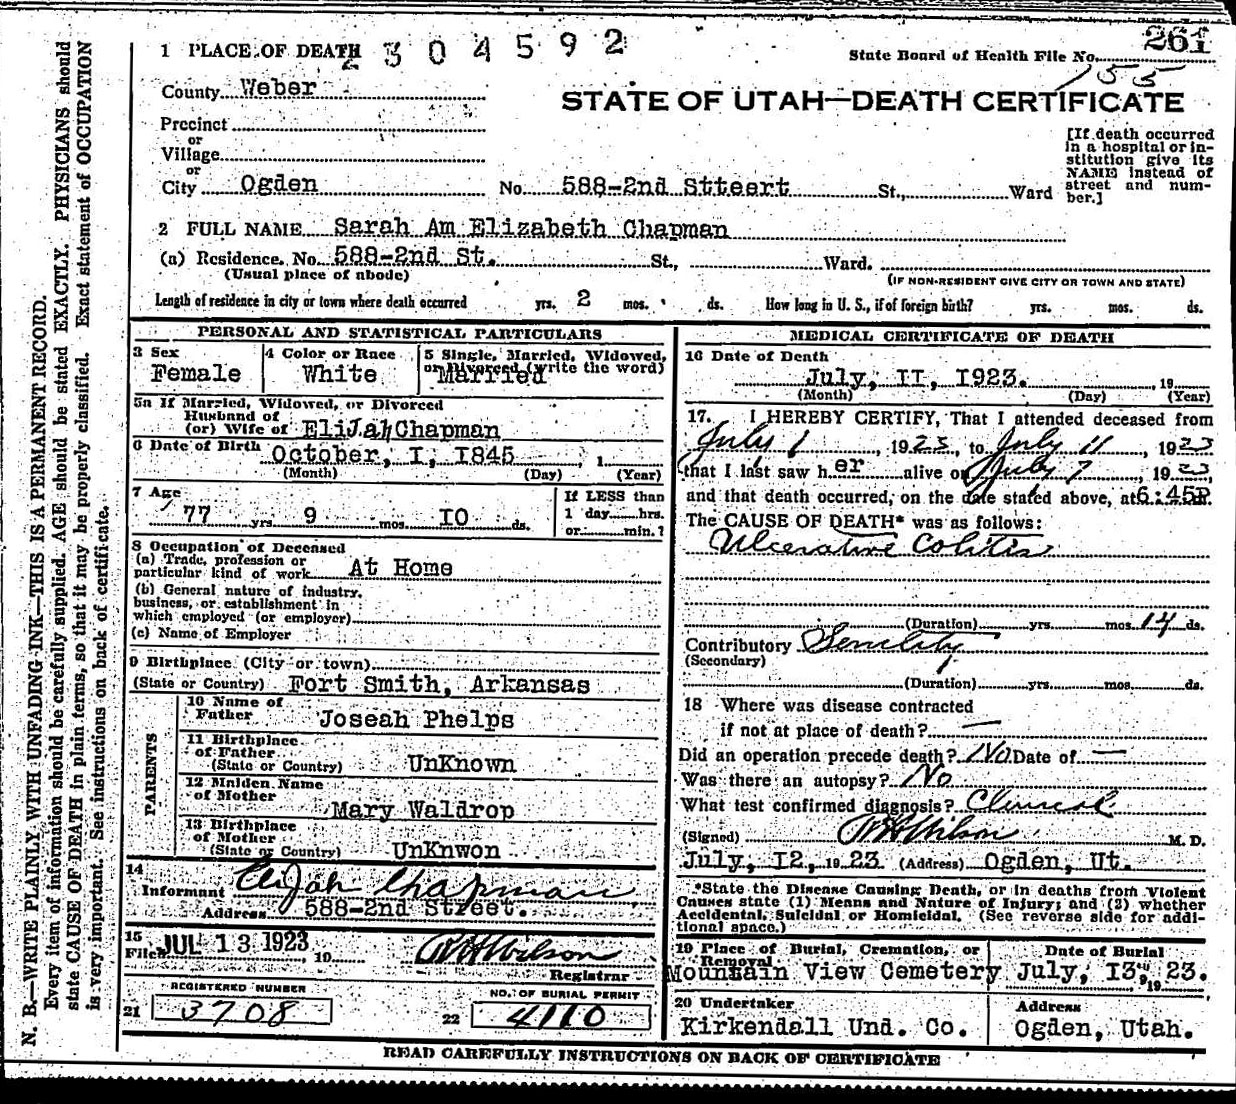 261
1 PLACE OF DEATH 2 3 0 4 5 9 2
State Board of Health File No.
155
County Weber
STATE OF UTAH—DEATH CERTIFICATE
Precinct
or
Village
or
City Ogden No. 588-2nd Stteert St., Ward
[If death occurred
in a hospital or in-
stitution give its
NAME instead of
street and num-
ber.]
2 FULL NAME Sarah Am Elizabeth Chapman
(a) Residence. No. 588-2nd St. St., Ward.
(Usual place of abode) (IF NON-RESIDENT GIVE CITY OR TOWN AND STATE)
Length of residence in city or town where death occurred yrs. 2 mos. ds. How long in U. S., if of foreign birth? yrs. mos. ds.
PERSONAL AND STATISTICAL PARTICULARS
3 Sex
Female
4 Color or Race
White
5 Single, Married, Widowed,
or Divorced (write the word)
Married
5a If Married, Widowed, or Divorced
Husband of
(or) Wife of EliJah Chapman
6 Date of Birth October, I, I845 , 1
(Month) (Day) (Year)
7 Age
77 yrs 9 mos. I0 ds.
If LESS than
1 day hrs.
or min.?
8 Occupation of Deceased
(a) Trade, profession or
particular kind of work At Home
(b) General nature of industry,
business, or establishment in
which employed (or employer)
(c) Name of Employer
9 Birthplace (City or town)
(State or Country) Fort Smith, Arkansas
PARENTS
10 Name of
Father Joseah Phelps
11 Birthplace
of Father
(State or Country) UnKnown
12 Maiden Name
of Mother
Mary Waldrop
13 Birthplace
of Mother
(State or Country) UnKnwon
14
Informant Elijah Chapman
Address 588-2nd Street.
15
Filed JUL 13 1923 , 19
R H Wilson
Registrar
REGISTERED NUMBER
21 3708
NO. OF BURIAL PERMIT
22 4110
MEDICAL CERTIFICATE OF DEATH
16 Date of Death
July, II, I923. , 19
(Month) (Day) (Year)
17. I HEREBY CERTIFY, That I attended deceased from
July 1 , 1923, to July 11 , 1923
that I last saw her alive on July 7 , 1923,
and that death occurred, on the date stated above, at 6:45P m.
The CAUSE OF DEATH* was as follows:
Ulcerative Colitis
(Duration) yrs mos 14 ds.
Contributory Senility
(Secondary)
(Duration) yrs mos. ds.
18 Where was disease contracted
if not at place of death? —
Did an operation precede death? No Date of —
Was there an autopsy? No
What test confirmed diagnosis? Clinical
(Signed) R H Wilson M. D.
July, I2, 19 23. (Address) Ogden, Ut.
*State the Disease Causing Death, or in deaths from Violent
Causes state (1) Means and Nature of Injury; and (2) whether
Accidental, Suicidal or Homicidal. (See reverse side for addi-
tional space.)
19 Place of Burial, Cremation, or
Removal
Mountain View Cemetery
Date of Burial
July, I3, 1923.
20 Undertaker
Kirkendall Und. Co.
Address
Ogden, Utah.
READ CAREFULLY INSTRUCTIONS ON BACK OF CERTIFICATE
N. B.—WRITE PLAINLY WITH UNFADING INK—THIS IS A PERMANENT RECORD.
Every item of information should be carefully supplied. AGE should be stated EXACTLY. PHYSICIANS should
state CAUSE OF DEATH in plain terms, so that it may be properly classified. Exact statement of OCCUPATION
is very important. See instructions on back of certificate.